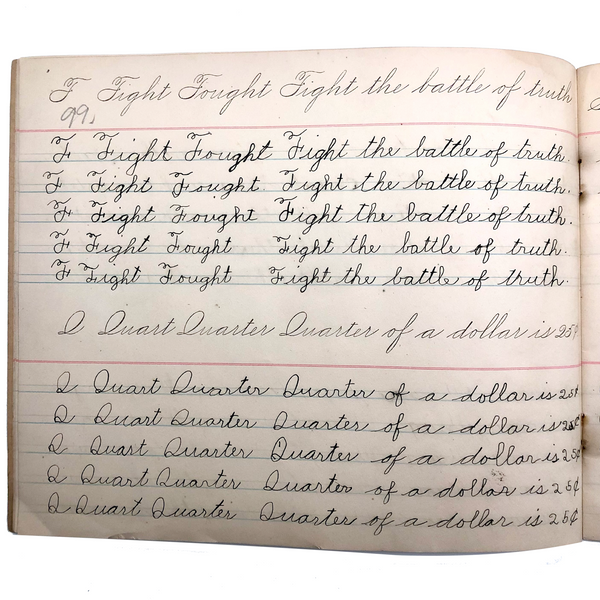 F Fight Fought Fight the battle of truth
99.
F Fight Fought Fight the battle of truth.
F Fight Fought. Fight the battle of truth.
F Fight Fought Fight the battle of truth.
F Fight Fought Fight the battle of truth.
F Fight Fought Fight the battle of truth.
Q Quart Quarter Quarter of a dollar is 25¢
Q Quart Quarter Quarter of a dollar is 25¢
Q Quart Quarter Quarter of a dollar is 25¢
Q Quart Quarter Quarter of a dollar is 25¢
Q Quart Quarter Quarter of a dollar is 25¢
Q Quart Quarter Quarter of a dollar is 25¢